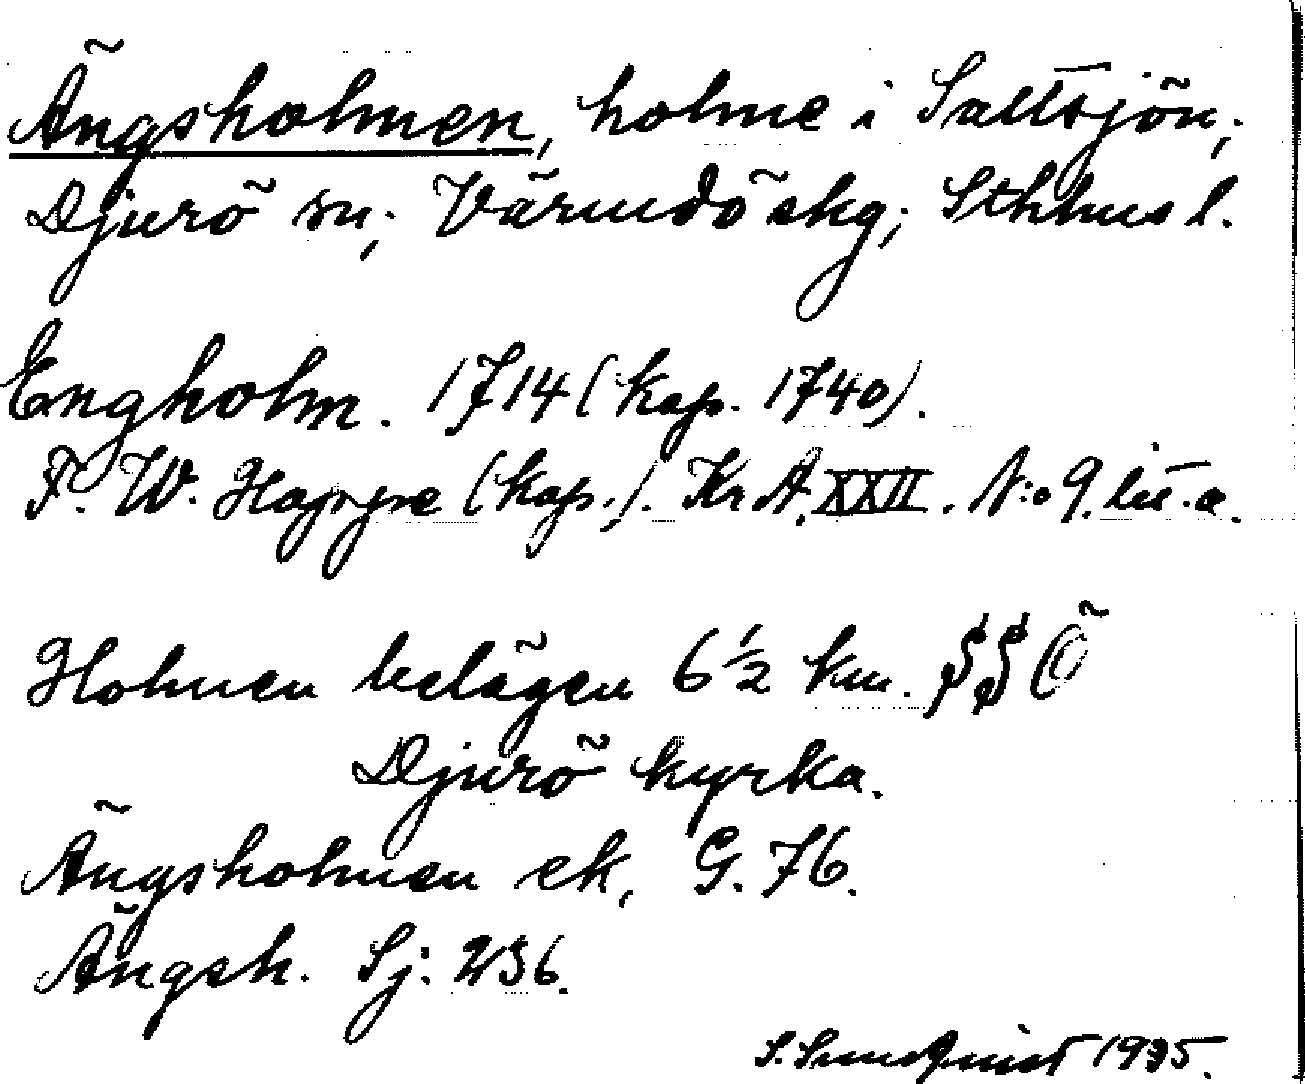 Ängsholmen, holme i Saltsjön;
Djurö sn; Värmdö skg; Sthlms l.
Engholm. 1714 (kap. 1740).
F. W. Happe (kap.). KrA. XXII. N:o 9. litt. a.
Holmen belägen 6 ½ km. SSÖ
Djurö kyrka.
Ängsholmen ek, G. 76.
Ängsh. Sj: 236.
S. Sundquist 1935.